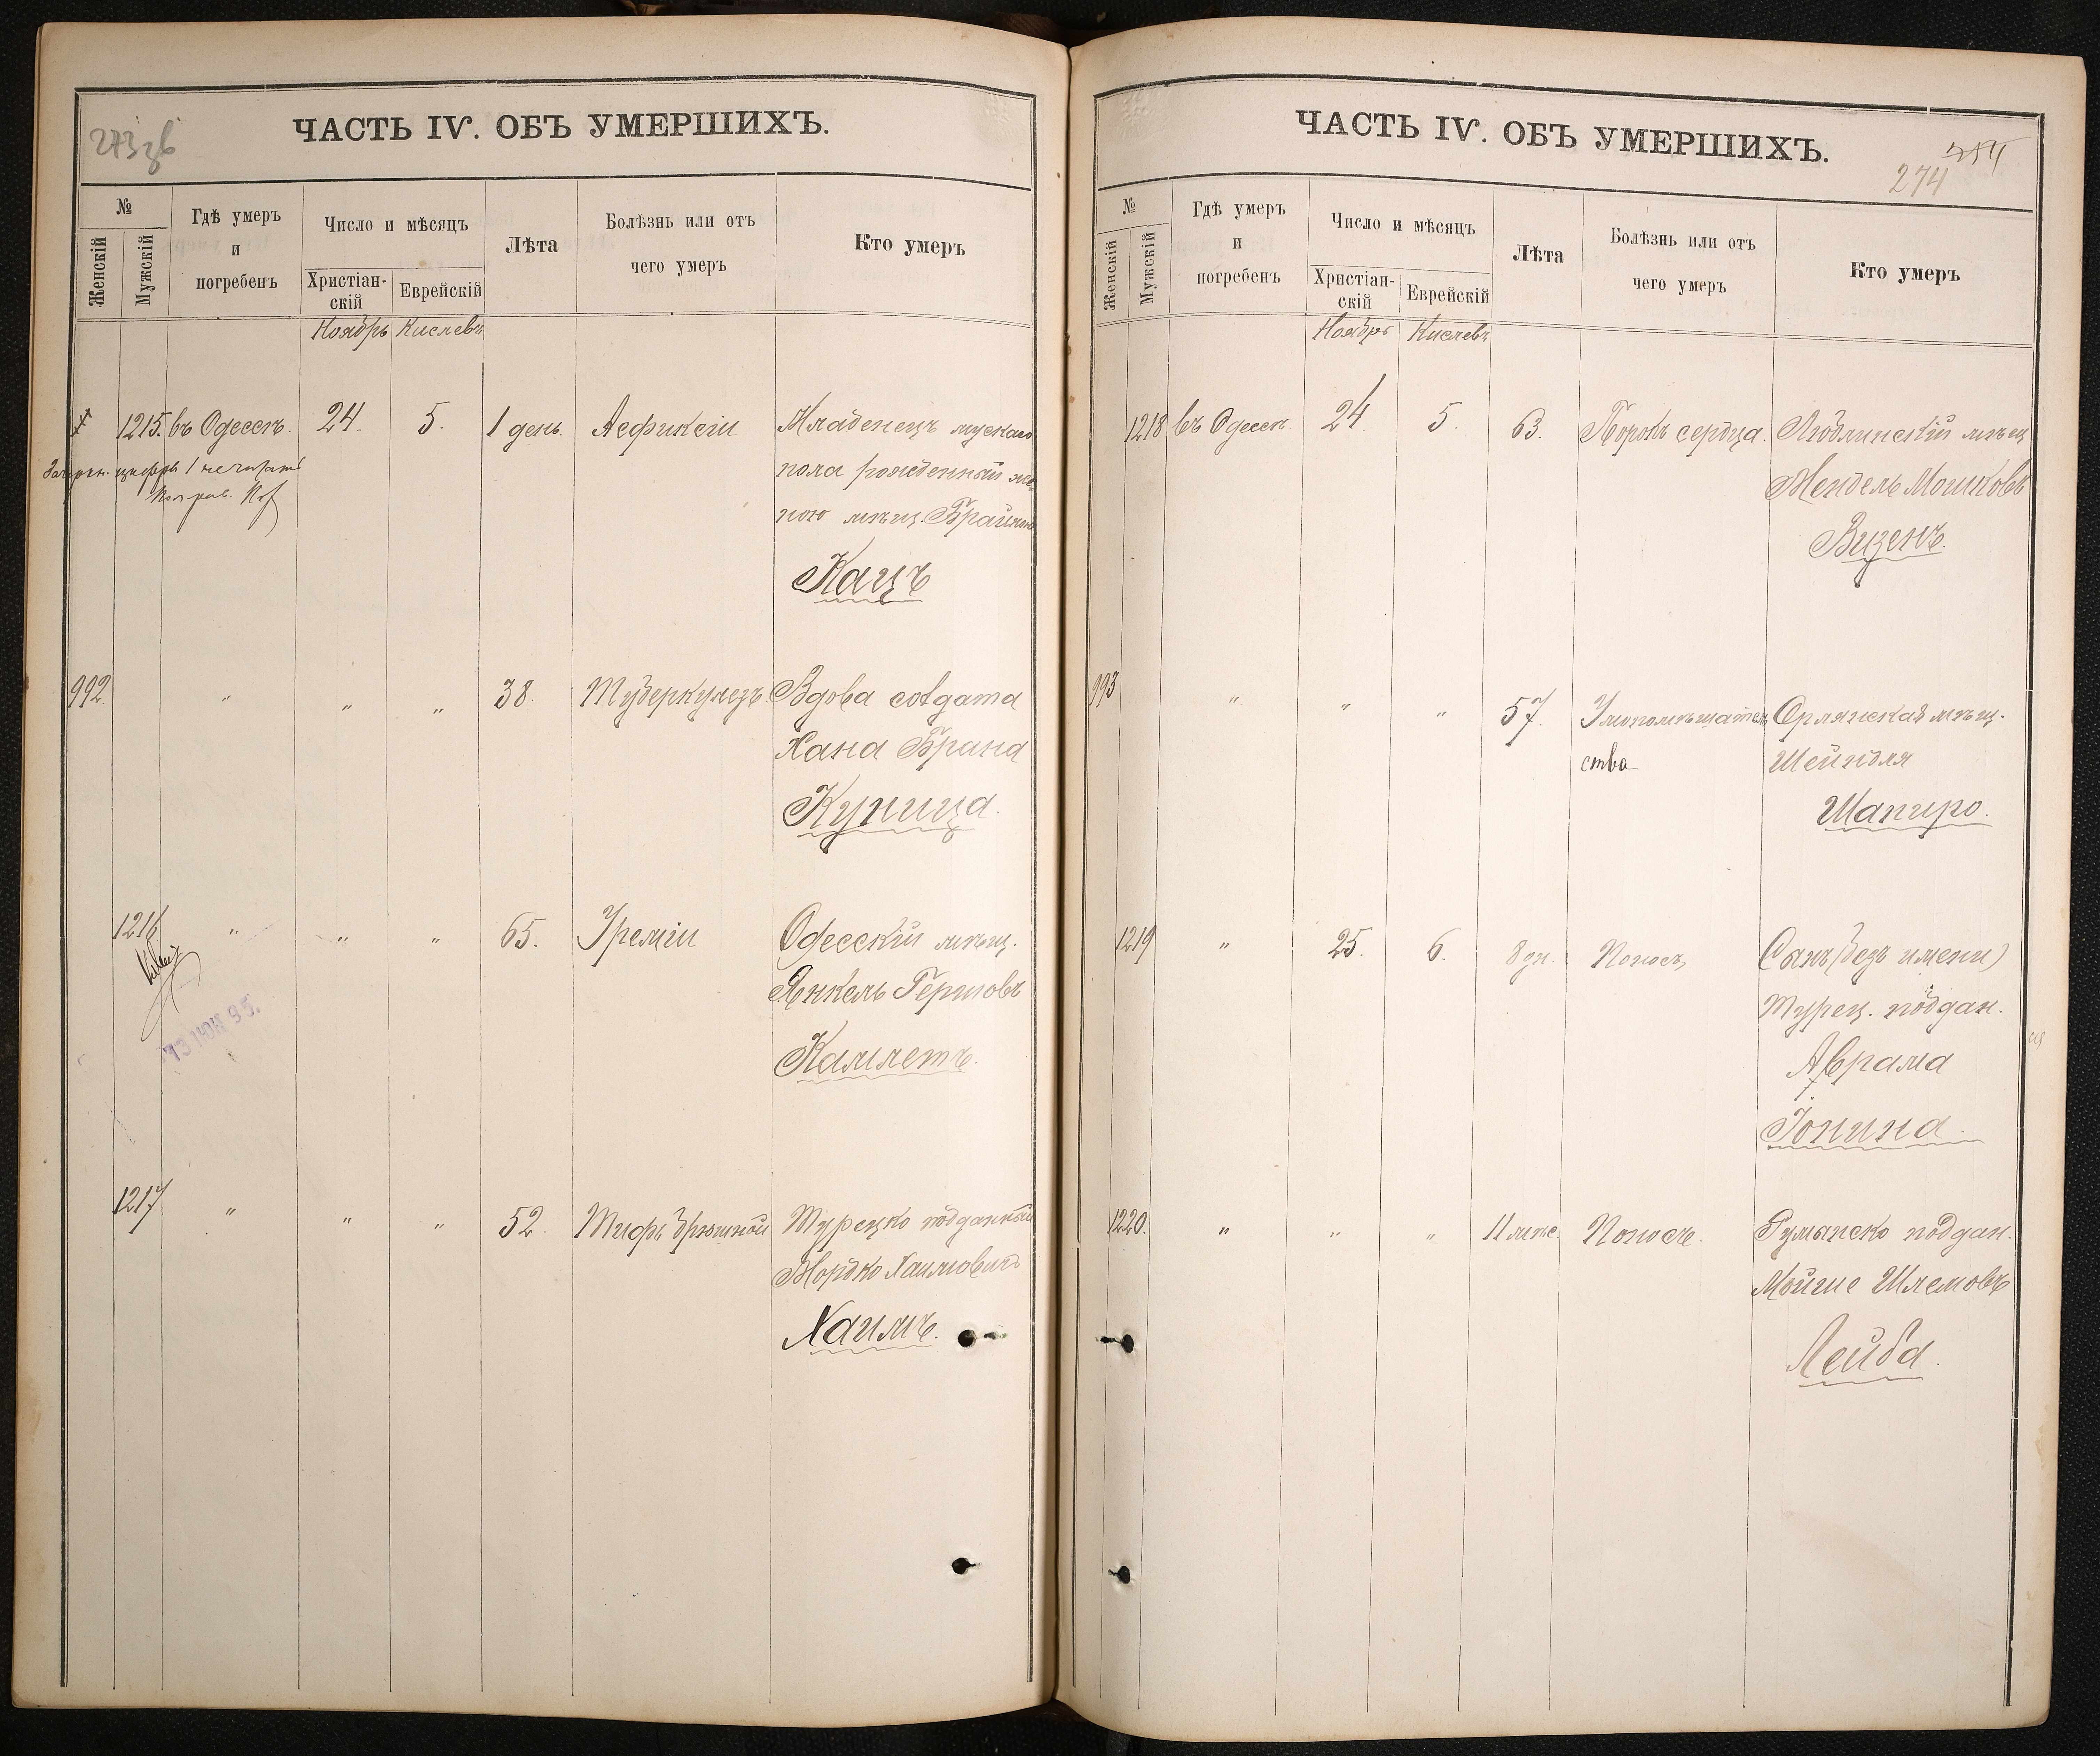 273 зв
ЧАСТЬ IV. ОБЪ УМЕРШИХЪ.
№
Женскій
Мужскій
Гдѣ умеръ
и
погребенъ
Число и мѣсяцъ
Христіан-
скій
Еврейскій
Лѣта
Болѣзнь или отъ
чего умеръ
Кто умеръ
Ноябрь Кислевъ
1215. въ Одессѣ. 24. 5. 1 день. Асфиксіи Младенецъ мускаго
пола рожденный же
ною мѣщ. Брайною
Кацъ
Зачеркн. цифры 1 не читать
992. " " " 38. Туберкулезъ Вдова солдата
Хана Брана
Куница.
1216 " " " 65. Уреміи Одесскій мѣщ.
Янкель Гершовъ
Камлетъ.
13 ІЮН 95.
1217 " " " 52. Тифъ брюшной Турецко подданный
Мордко Хаимовичъ
Хаимъ.
ЧАСТЬ IV. ОБЪ УМЕРШИХЪ.
274
№
Женскій
Мужскій
Гдѣ умеръ
и
погребенъ
Число и мѣсяцъ
Христіан-
скій
Еврейскій
Лѣта
Болѣзнь или отъ
чего умеръ
Кто умеръ
Ноябрь Кислевъ
1218 въ Одессѣ. 24 5. 63. Порокъ сердца. Люблинскій мѣщ
Мендель Мошковъ
Визенъ.
993 " " " 57. Умопомѣшатель Орлянская мѣщ.
ства Шейндля
Шапиро.
1219 " 25. 6. 8 дн. Поносъ Сынъ (безъ имени)
Турец. поддан.
Аврама
Іонина.
1220. " " " 11 мѣс. Поносъ. Румынско поддан.
Мойше Шлемовъ
Лейба.